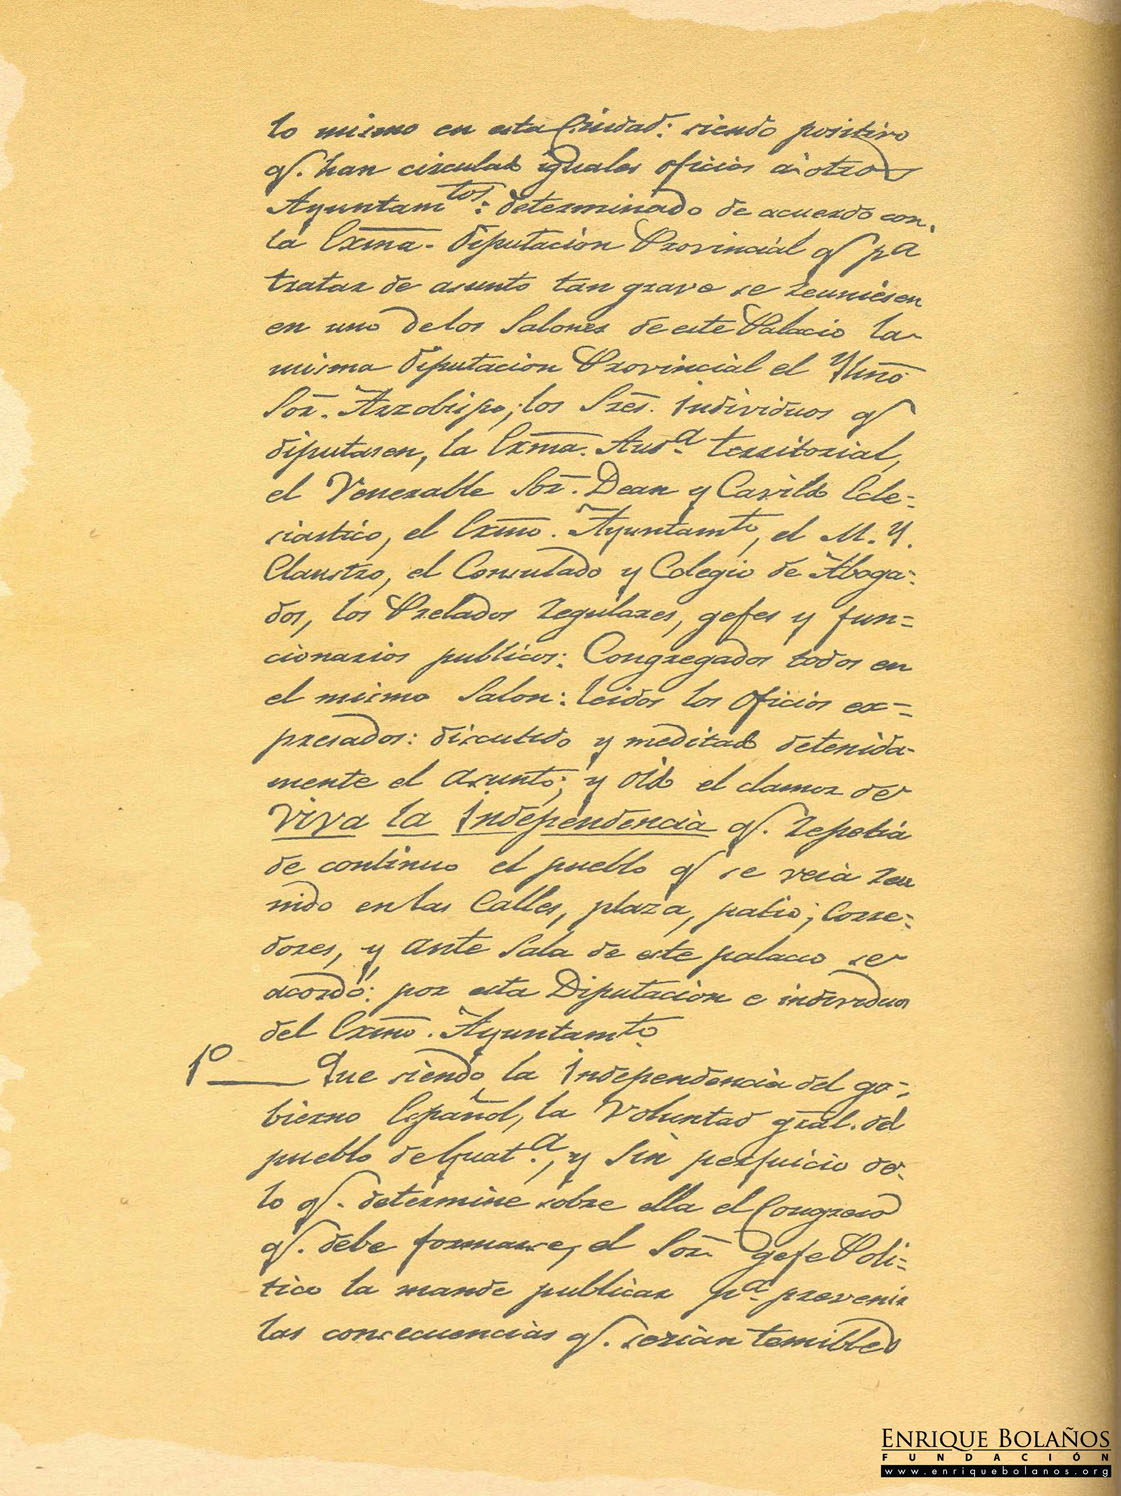 lo mismo en esta Ciudad: siendo positivo
q͞. han circulado iguales oficios á otros
Ayuntamtos: determinado de acuerdo con
la Exma. Diputacion Provincial q͞ pa
tratar de asunto tan grave se reuniesen
en uno de los Salones de este Palacio la
misma Diputacion Provincial el Yllmō
Sor. Arzobispo, los Sres. individuos q͞
diputasen, la Exma. Auda. territorial,
el Venerable Sor. Dean y Cavildo Ecle=
siastico, el Exmo. Ayuntamto, el M. Y.
Claustro, el Consulado y Colegio de Aboga=
dos, los Prelados regulares, gefes y fun=
cionarios publicos: Congregados todos en
el mismo Salon: leidos los oficios ex=
presados: discutido y meditado detenida
mente el asunto; y oido el clamor de
Viva la Independencia q͞. repetia
de continuo el pueblo q͞ se veia reu
nido en las Calles, plaza, patio, Corre=
dores, y ante Sala de este palacio se
acordó: por esta Diputacion e individuos
del Exmo. Ayuntamto
1º Que siendo la Independencia del go=
bierno Español, la Voluntad gral. del
pueblo de Guata., y Sin perjuicio de
lo q͞. determine sobre ella el Congreso
q͞. debe formarse, el Sor. Gefe Poli=
tico la mande publicar pa. prevenir
las consecuencias q͞. serian temibles
ENRIQUE BOLAÑOS
FUNDACIÓN
www.enriquebolanos.org